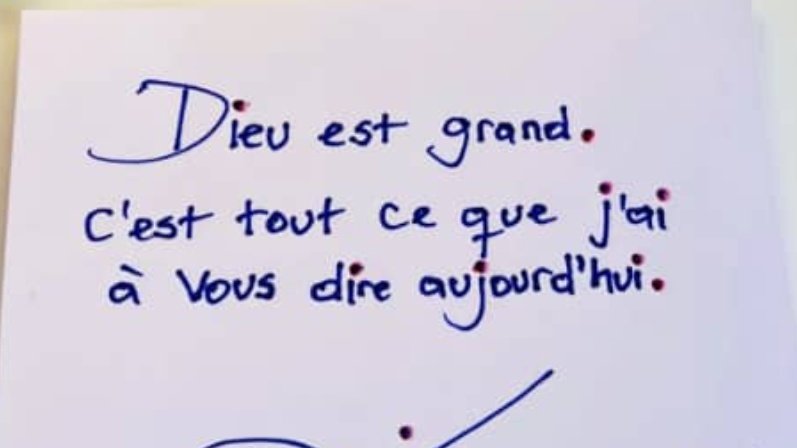 Dieu est grand.
C'est tout ce que j'ai
à vous dire aujourd'hui.